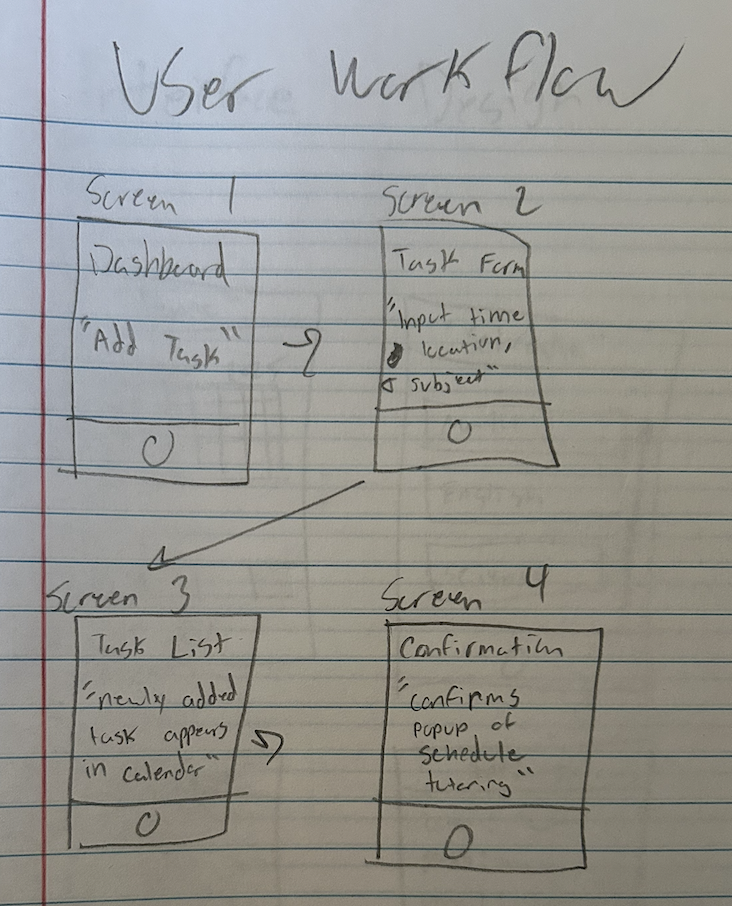 User Workflow
Screen 1
Dashboard
"Add Task"
Screen 2
Task Form
"Input time
location,
& subject"
Screen 3
Task List
"newly added
task appears
in calendar"
Screen 4
Confirmation
"confirms
popup of
schedule
tutoring"